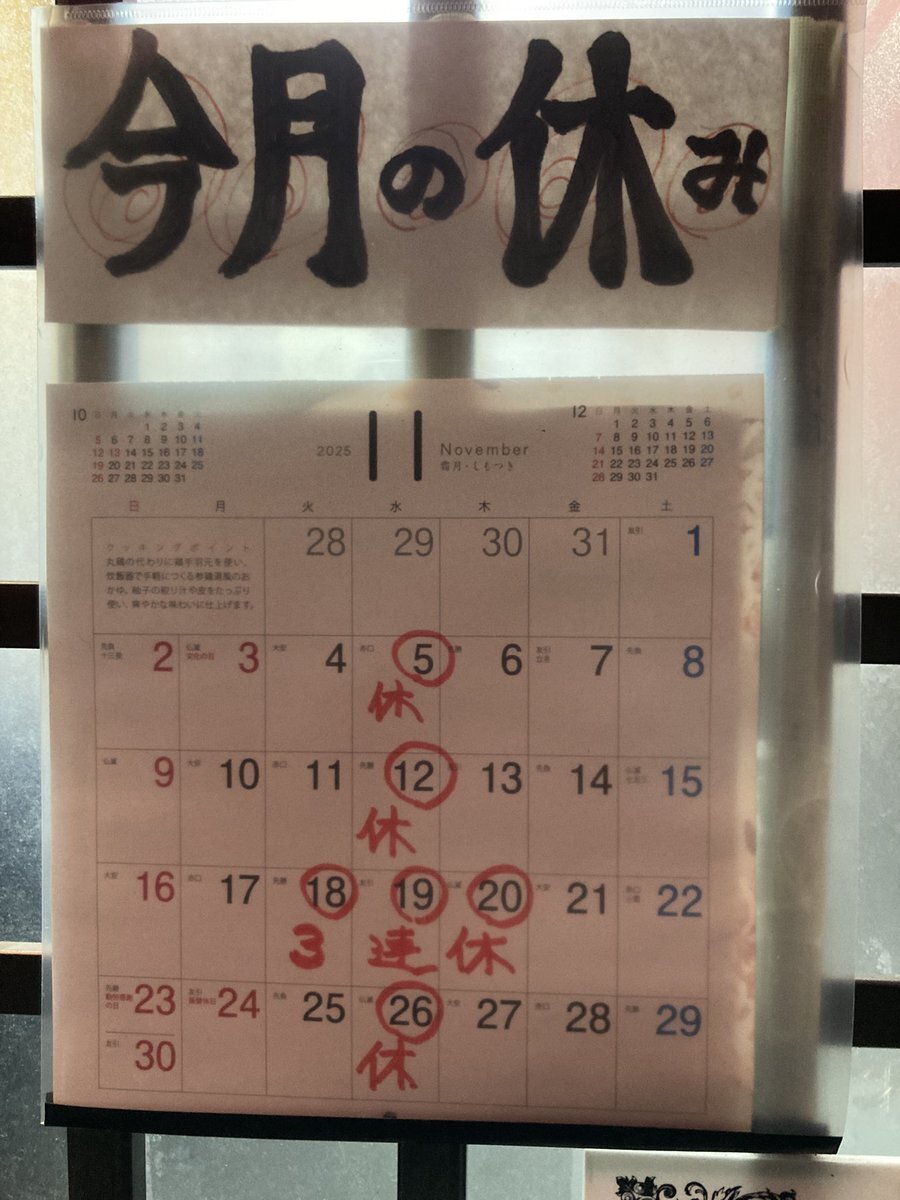 今月の休み
10
日 月 火 水 木 金 土
1 2 3 4
5 6 7 8 9 10 11
12 13 14 15 16 17 18
19 20 21 22 23 24 25
26 27 28 29 30 31
2025 11 November
霜月・しもつき
12
日 月 火 水 木 金 土
1 2 3 4 5 6
7 8 9 10 11 12 13
14 15 16 17 18 19 20
21 22 23 24 25 26 27
28 29 30 31
日 月 火 水 木 金 土
クッキングポイント
丸鶏の代わりに鶏手羽元を使い、
炊飯器で手軽につくる参鶏湯風のお
かゆ。柚子の絞り汁や皮をたっぷり
使い、爽やかな味わいに仕上げます。
28 29 30 31 友引 1
先負 十三夜 2 仏滅 文化の日 3 大安 4 赤口 5 先勝 6 友引 立冬 7 先負 8
休
仏滅 9 大安 10 赤口 11 先勝 12 友引 13 先負 14 仏滅 七五三 15
休
大安 16 赤口 17 先勝 18 友引 19 仏滅 20 大安 21 赤口 小雪 22
3 連 休
先勝 勤労感謝の日 23 友引 振替休日 24 先負 25 仏滅 26 大安 27 赤口 28 先勝 29
休
友引 30